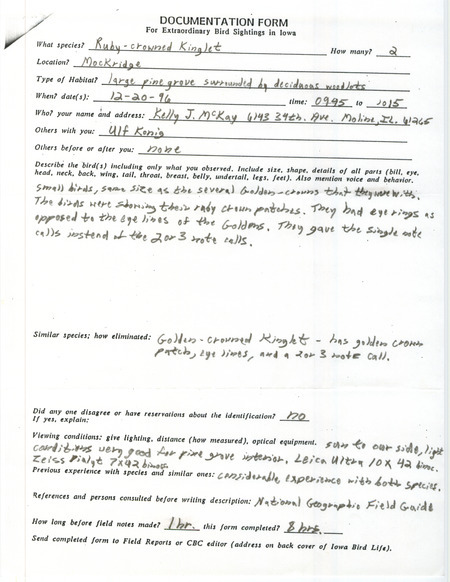 DOCUMENTATION FORM
For Extraordinary Bird Sightings in Iowa
What species? Ruby-crowned Kinglet How many? 2
Location? Mockridge
Type of Habitat? large pine grove surrounded by deciduous woodlots
When? date(s): 12-20-96 time: 0945 to 1015
Who? your name and address: Kelly J. McKay 6143 34th. Ave. Moline, IL. 61265
Others with you: Ulf Konig
Others before or after you: none
Describe the bird(s) including only what you observed. Include size, shape, details of all parts (bill, eye,
head, neck, back, wing, tail, throat, breast, belly, undertail, legs, feet). Also mention voice and behavior.
Small birds, same size as the several Golden-crowns that they were with.
The birds were showing their ruby crown patches. They had eye rings as
opposed to the eye lines of the Goldens. They gave the single note
calls instead of the 2 or 3 note calls.
Similar species; how eliminated: Golden-crowned Kinglet - has golden crown
patch, eye lines, and a 2 or 3 note call.
Did any one disagree or have reservations about the identification? no
If yes, explain:
Viewing conditions: give lighting, distance (how measured), optical equipment. sun to our side, light
conditions very good for pine grove interior. Leica Ultra 10X 42 binoc.
Zeiss Dialyt 7X42 binocs.
Previous experience with species and similar ones: considerable experience with both species.
References and persons consulted before writing description: National Geographic Field Guide
How long before field notes made? 1 hr. this form completed? 8 hrs.
Send completed form to Field Reports or CBC editor (address on back cover of Iowa Bird Life).